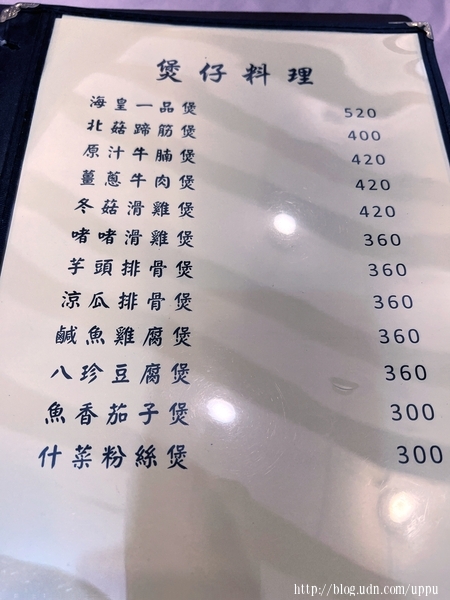 煲仔料理
海皇一品煲 520
北菇蹄筋煲 400
原汁牛腩煲 420
薑蔥牛肉煲 420
冬菇滑雞煲 420
啫啫滑雞煲 360
芋頭排骨煲 360
涼瓜排骨煲 360
鹹魚雞腐煲 360
八珍豆腐煲 360
魚香茄子煲 300
什菜粉絲煲 300
http://blog.udn.com/uppu